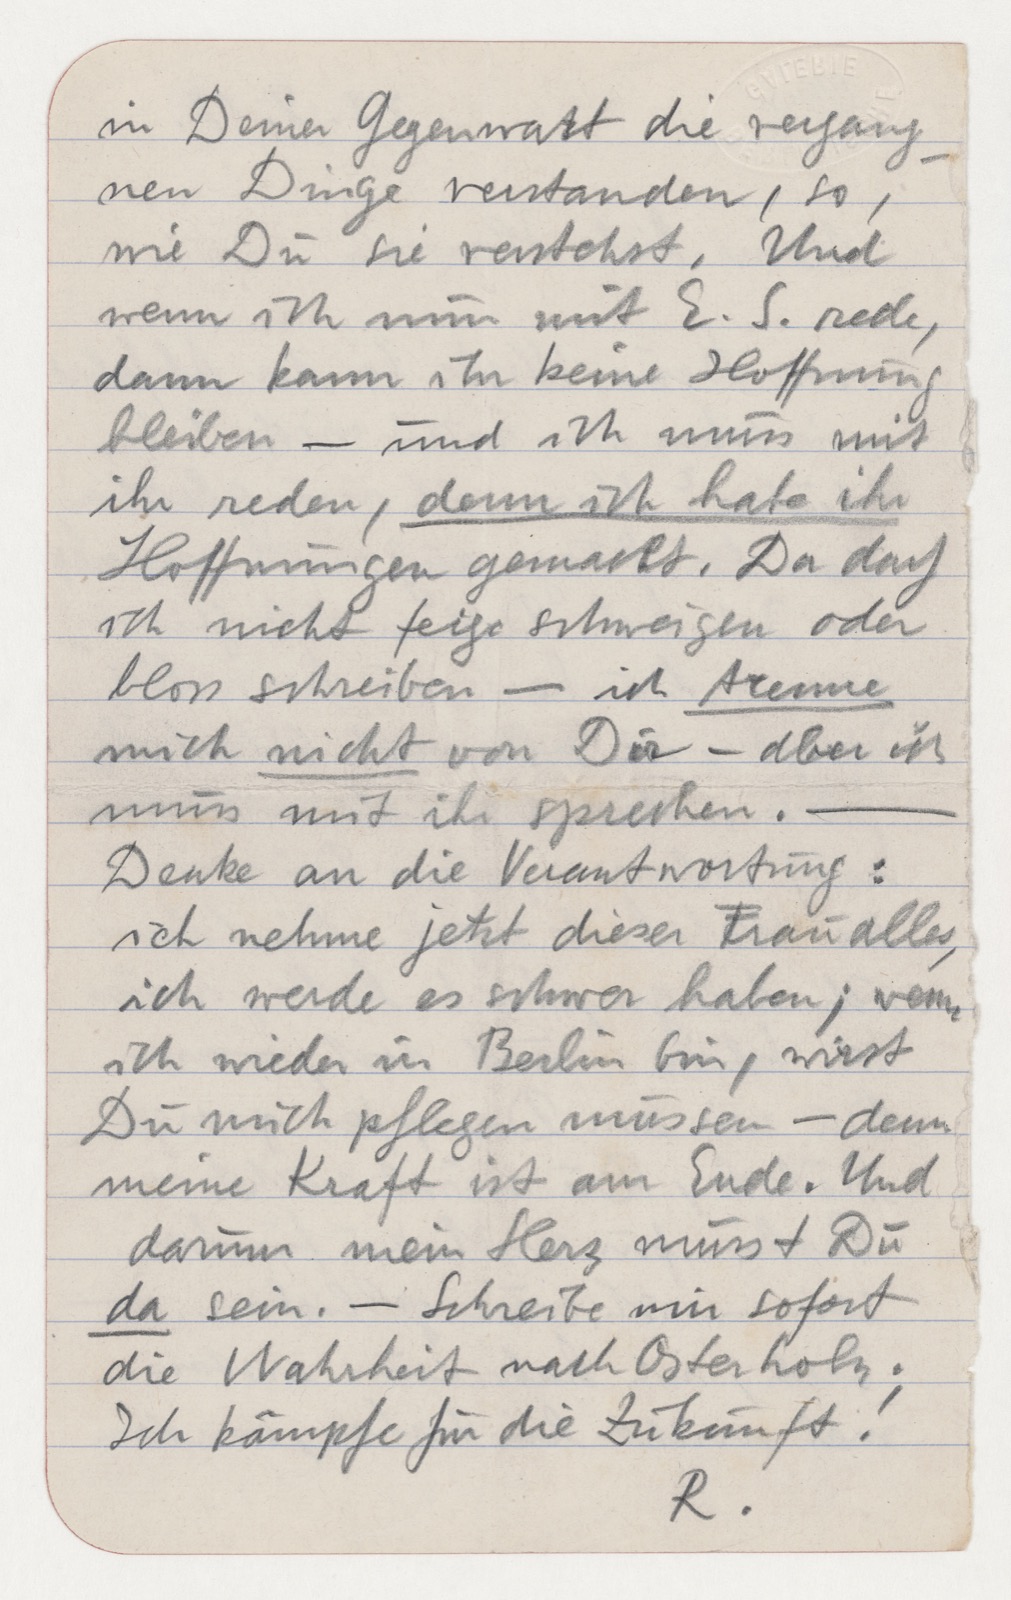 in Deiner Gegenwart die vergang-
nen Dinge verstanden, so,
wie Du sie verstehst. Und
wenn ich nun mit E. S. rede,
dann kann ihr keine Hoffnung
bleiben — und ich muss mit
ihr reden, denn ich habe ihr
Hoffnungen gemacht. Da darf
ich nicht feige schweigen oder
bloss schreiben — ich trenne
mich nicht von Dir — aber ich
muss mit ihr sprechen. —
Denke an die Verantwortung:
ich nehme jetzt dieser Frau alles,
ich werde es schwer haben; wenn
ich wieder in Berlin bin, wirst
Du mich pflegen müssen — denn
meine Kraft ist am Ende. Und
darum mein Herz musst Du
da sein. — Schreibe mir sofort
die Wahrheit nach Osterholz.
Ich kämpfe für die Zukunft!
R.